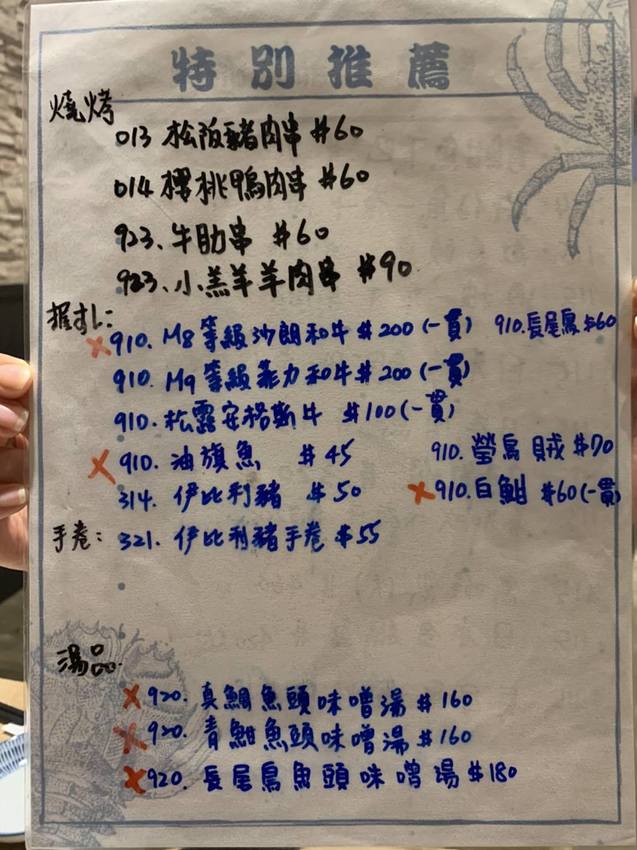 特別推薦
燒烤
013 松阪豬肉串 #60
014 櫻桃鴨肉串 #60
923、牛肋串 #60
923、小羔羊羊肉串 #90
握すし:
×910. M8等級沙朗和牛 #200 (一貫) 910.長尾鳥 #60
910. M9等級菲力和牛 #200 (一貫)
910. 松露安格斯牛 #100 (一貫)
×910. 油旗魚 #45 910. 螢烏賊 #70
314. 伊比利豬 #50 ×910.白魽 #60(一貫)
手卷: 321. 伊比利豬手卷 #55
湯品
×920. 真鯛魚頭味噌湯 #160
×920. 青魽魚頭味噌湯 #160
×920. 長尾鳥魚頭味噌湯 #180